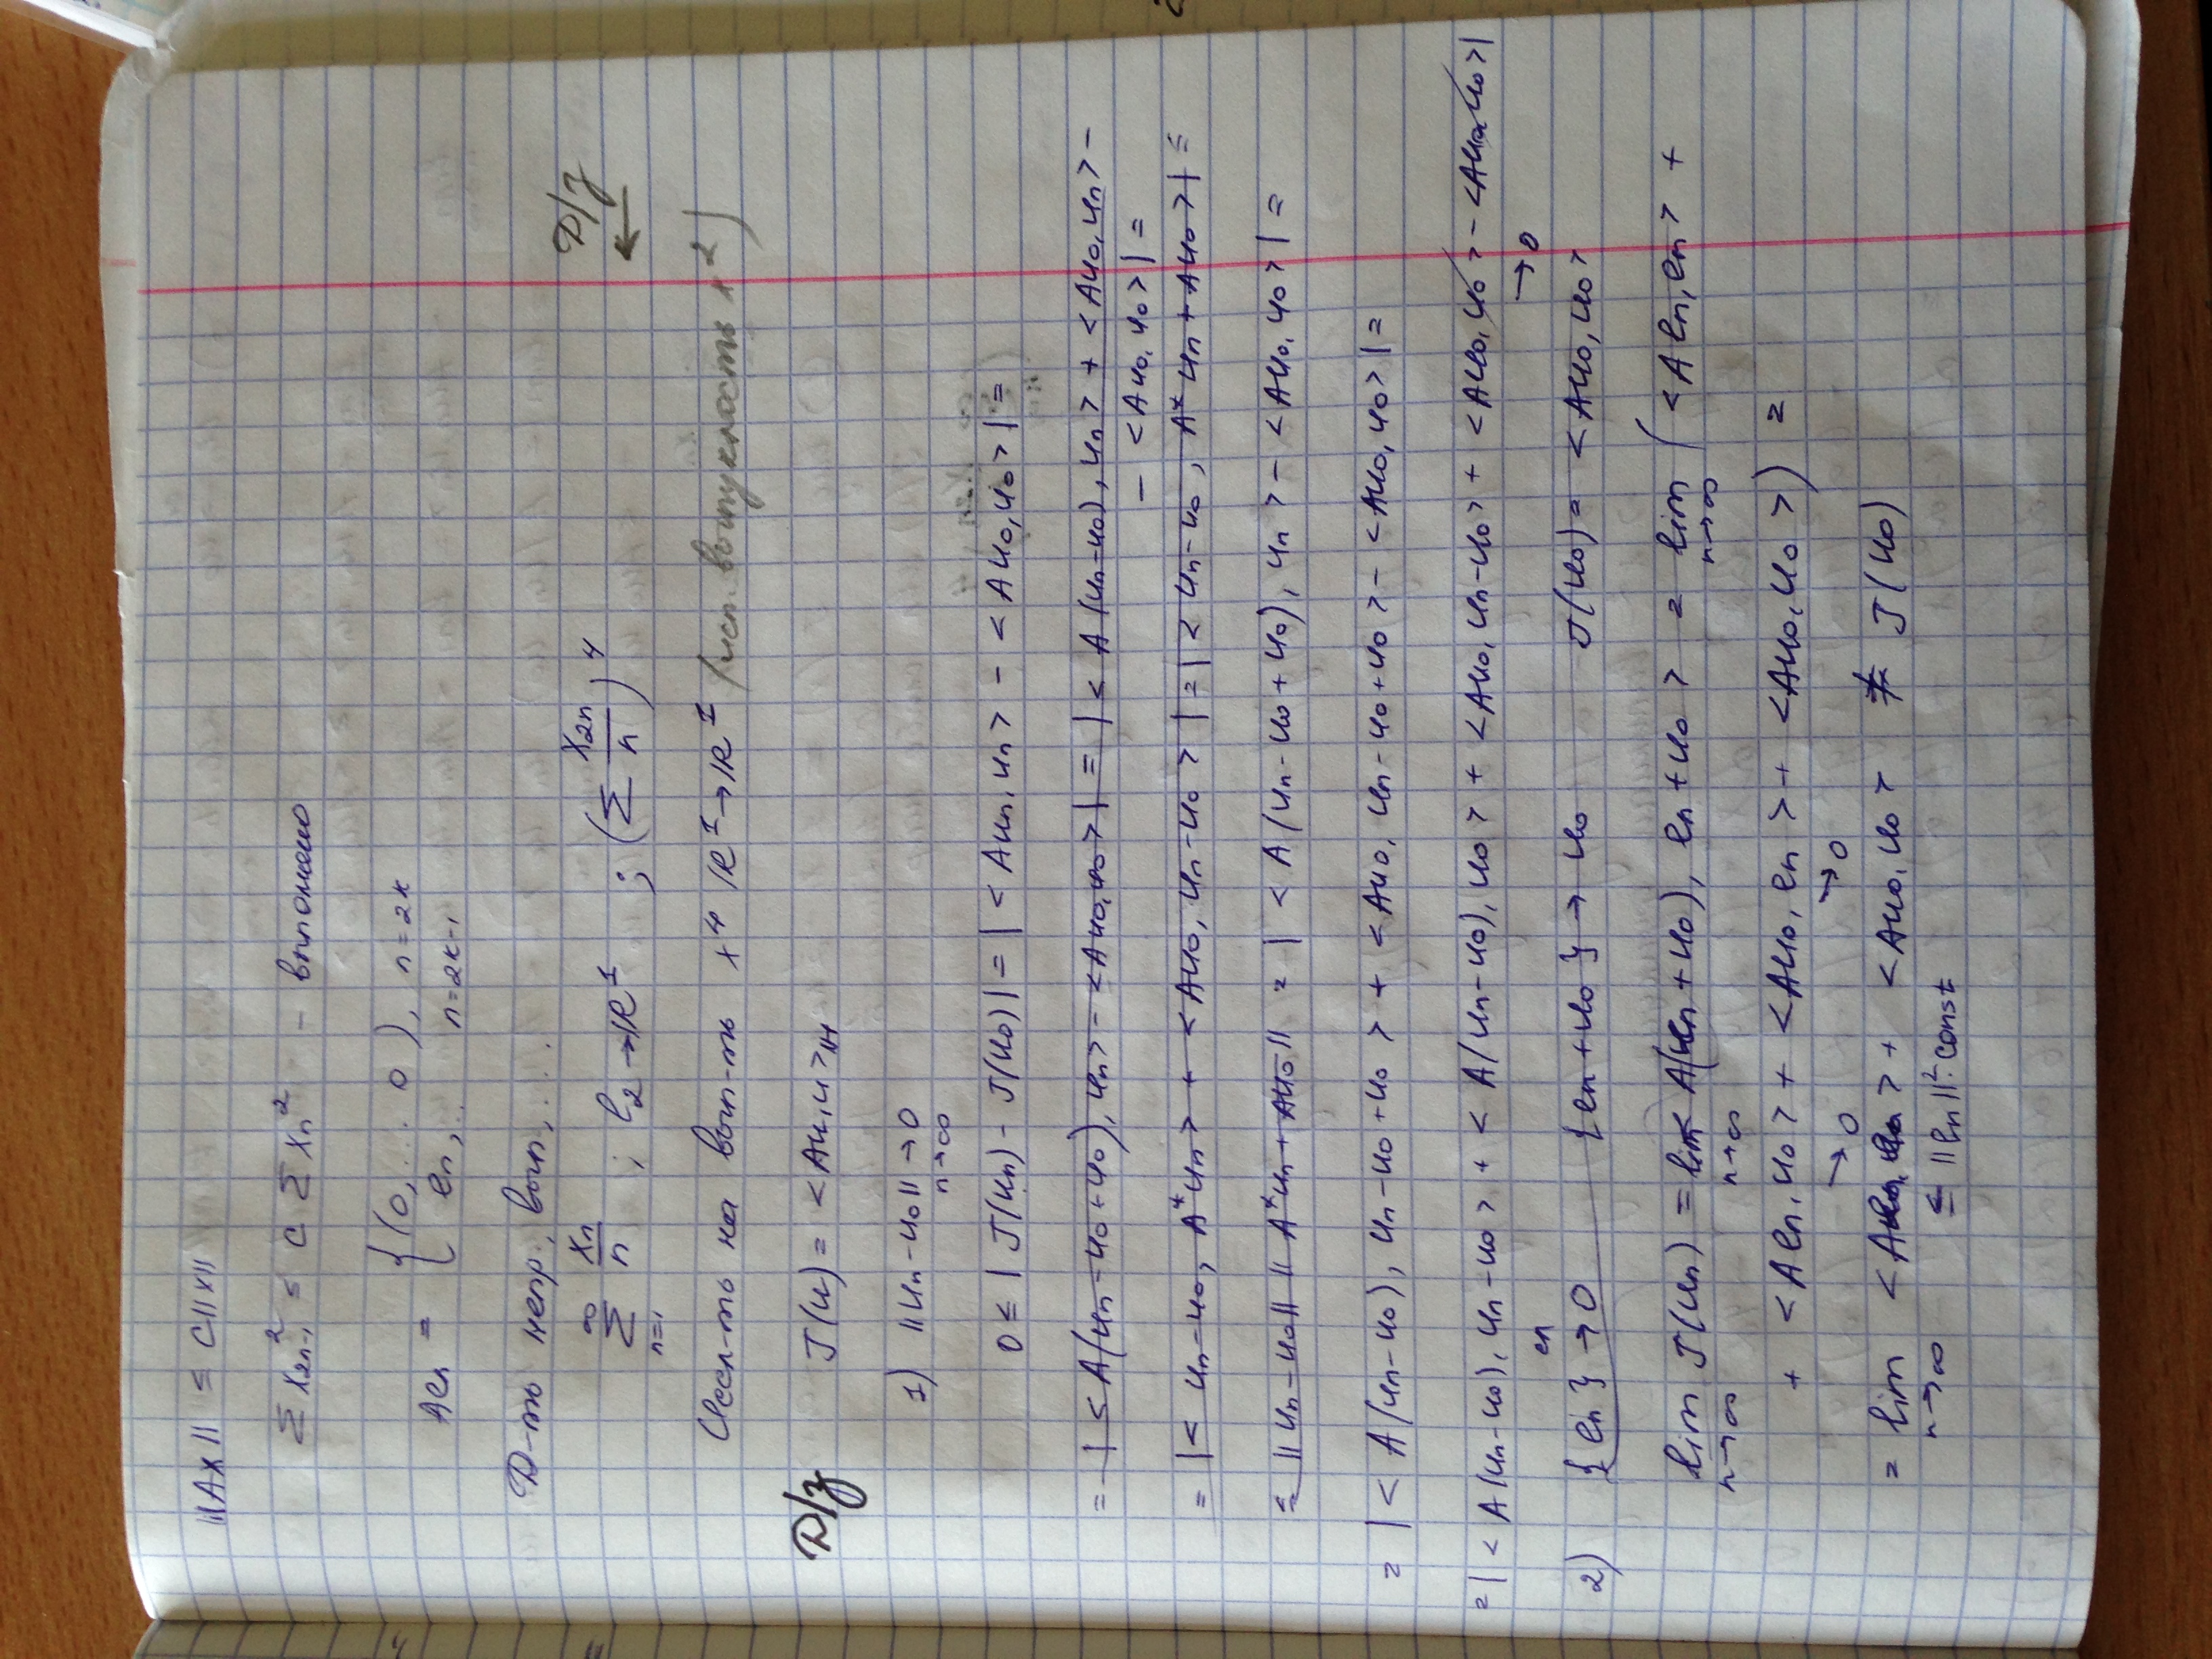 ||Ax|| ≤ C||x||
Σ x²₂ₙ₋₁ ≤ C Σ xₙ² – выполнено
Aeₙ = { (0, ... 0), n=2k
eₙ, .. n=2k-1
Д/з
←
Д-ть непр, вып, ...
Σ_{n=1}^∞ xₙ/n ; l₂→R¹ ; (Σ x₂ₙ/n)⁴
Иссл-ть на вып-ть x⁴ R¹→R¹ (исп. выпуклость x²)
Д/з J(u) = <Au,u>_H
1) ||uₙ-u₀|| →0 n→∞
0 ≤ |J(uₙ) - J(u₀)| = |<Auₙ,uₙ> - <Au₀,u₀>| =
= |<A(uₙ-u₀+u₀),uₙ> - <Au₀,u₀>| = |<A(uₙ-u₀),uₙ> + <Au₀,uₙ> -
- <Au₀,u₀>| =
= |<uₙ-u₀, A*uₙ> + <Au₀, uₙ-u₀>| = |<uₙ-u₀, A*uₙ + Au₀>| ≤
≤ ||uₙ-u₀|| ||A*uₙ + Au₀|| = |<A(uₙ-u₀+u₀), uₙ> - <Au₀,u₀>| =
= |<A(uₙ-u₀), uₙ-u₀+u₀> + <Au₀, uₙ-u₀+u₀> - <Au₀,u₀>| =
= |<A(uₙ-u₀), uₙ-u₀> + <A(uₙ-u₀),u₀> + <Au₀, uₙ-u₀> + <Au₀,u₀> - <Au₀,u₀>|
→0
2) {eₙ} →0 {eₙ+u₀} → u₀ J(u₀) = <Au₀,u₀>
lim_{n→∞} J(uₙ) = lim_{n→∞} <A(eₙ+u₀), eₙ+u₀> = lim_{n→∞} (<Aeₙ,eₙ> +
+ <Aeₙ,u₀> + <Au₀,eₙ> + <Au₀,u₀>) =
→0 →0
= lim_{n→∞} <Aeₙ,eₙ> + <Au₀,u₀> ≠ J(u₀)
≤ ||eₙ||²·const